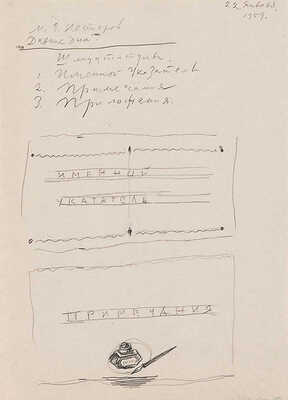 22 января
1959.
М. В. Нестеров
Давние дни
Шмуцтитулы.
1. Именной указатель
2. Примечания
3. Приложения.
ИМЕННОЙ
УКАЗАТЕЛЬ
ПРИМЕЧАНИЯ